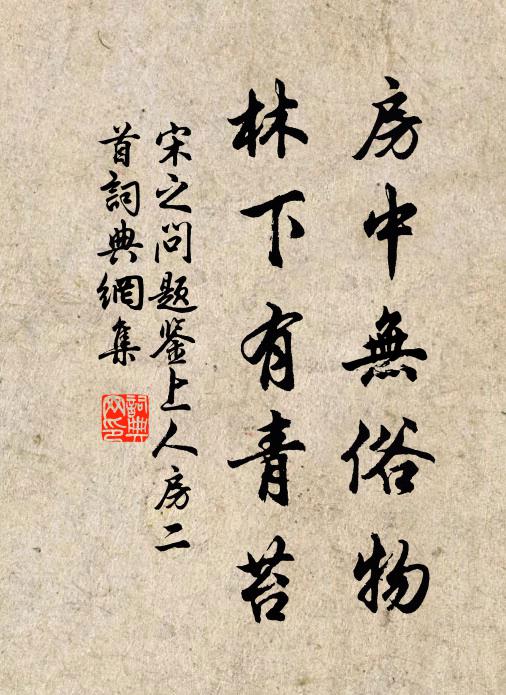 房中無俗物
林下有青苔
宋之问题鉴上人房二
首詞典網集
詞典
网印